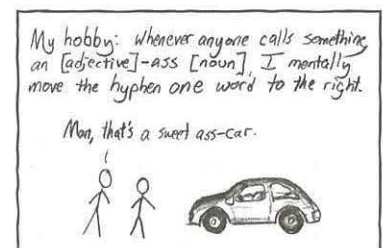 My hobby: whenever anyone calls something
an [adjective]-ass [noun], I mentally
move the hyphen one word to the right.
Man, that's a sweet ass-car.